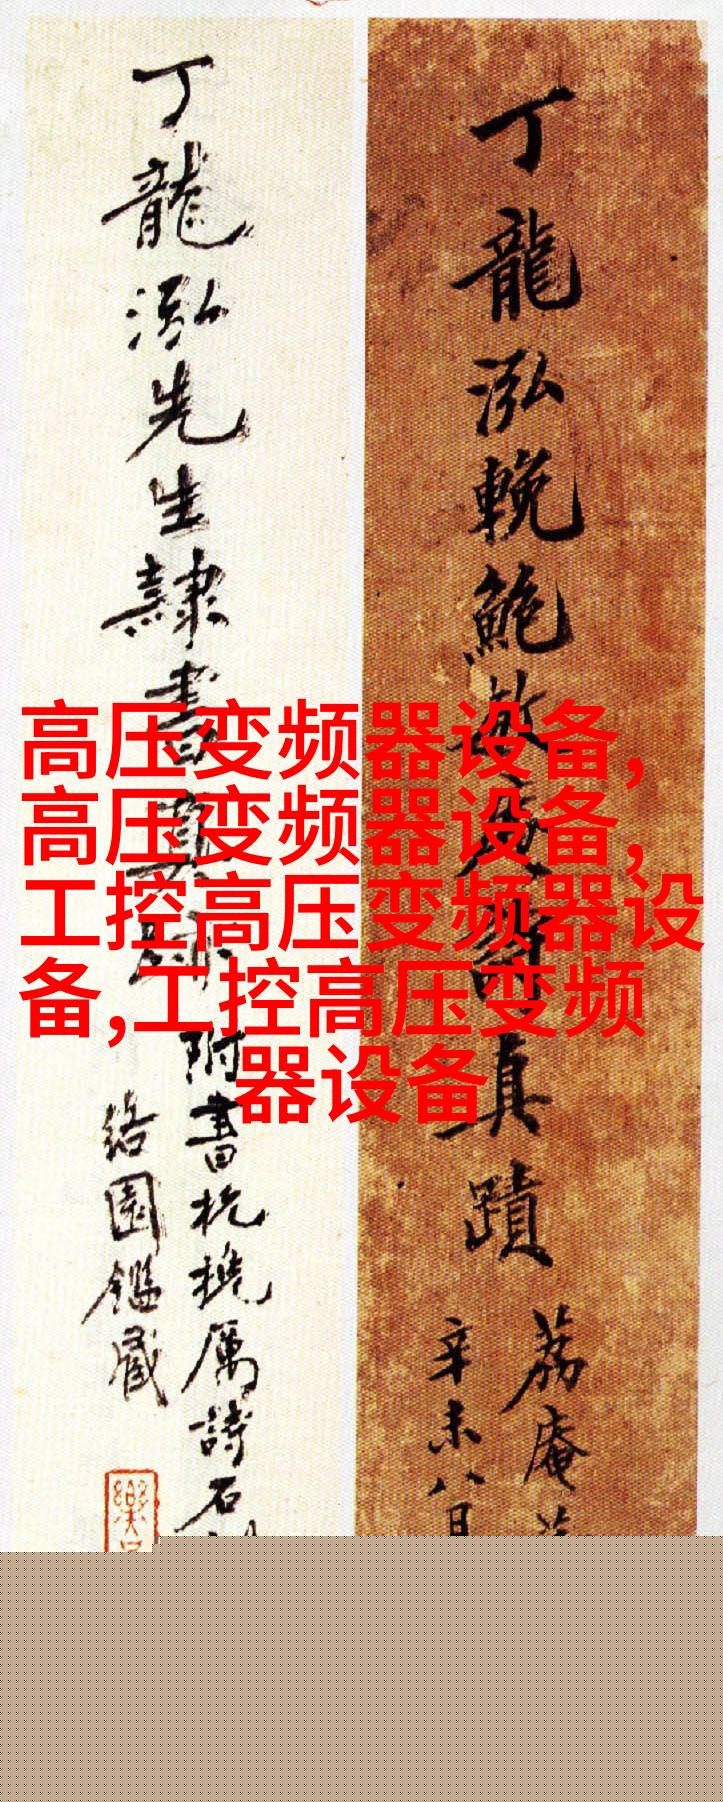 丁龍泓輓鮑
真蹟
荔庵
辛未八月
丁龍泓先生隸書真跡
附書杭
厲詩石
園鑑藏
樂
高压变频器设备,
高压变频器设备,
工控高压变频器设
备,工控高压变频
器设备